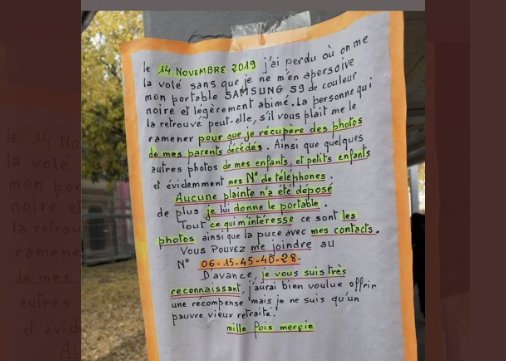 le 14 NOVEMBRE 2019 j'ai perdu où on me
la volé sans que je ne m'en apersoive
mon portable SAMSUNG S9 de couleur
noire et légèrement abimé. La personne qui
la retrouve peut-elle, s'il vous plait me le
ramener pour que je récupère des photos
de mes parents décédés. Ainsi que quelques
autres photos de mes enfants, et petits enfants
et évidemment mes N° de téléphones.
Aucune plainte n'a été déposé
de plus je lui donne le portable.
Tout ce qui m'intéresse ce sont les
photos ainsi que la puce avec mes contacts.
VOUS POUVEZ me joindre au
N° 06-15-45-40-28.
D'avance, je vous suis très
reconnaissant, j'aurai bien voulue offrir
une récompense mais je ne suis qu'un
pauvre vieux retraité.
mille fois merçie